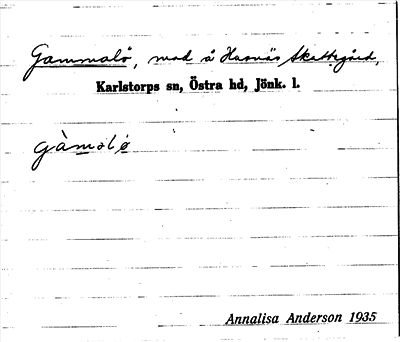 Gammalö, mad å Hasnäs Skattegård,
Karlstorps sn, Östra hd, Jönk. l.
gàmalø
Annalisa Anderson 1935